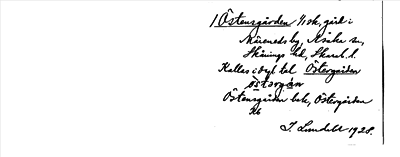 1 Östensgården 1/1 sk, gård i
Måreneds by, Åsaka sn,
Skånings hd, Skarab. l.
Kallas i dagl. tal Östergården
östərgán
Östensgården bok, Östergården
Kb
J. Lundahl 1928.